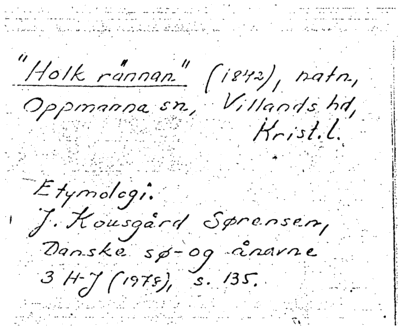 "Holk rännan" (1842), natn,
Oppmanna sn, Villands hd,
Krist. l.
Etymologi.
J. Kousgård Sørensen,
Danske sø- og ånavne
3 H-J (1978), s. 135.